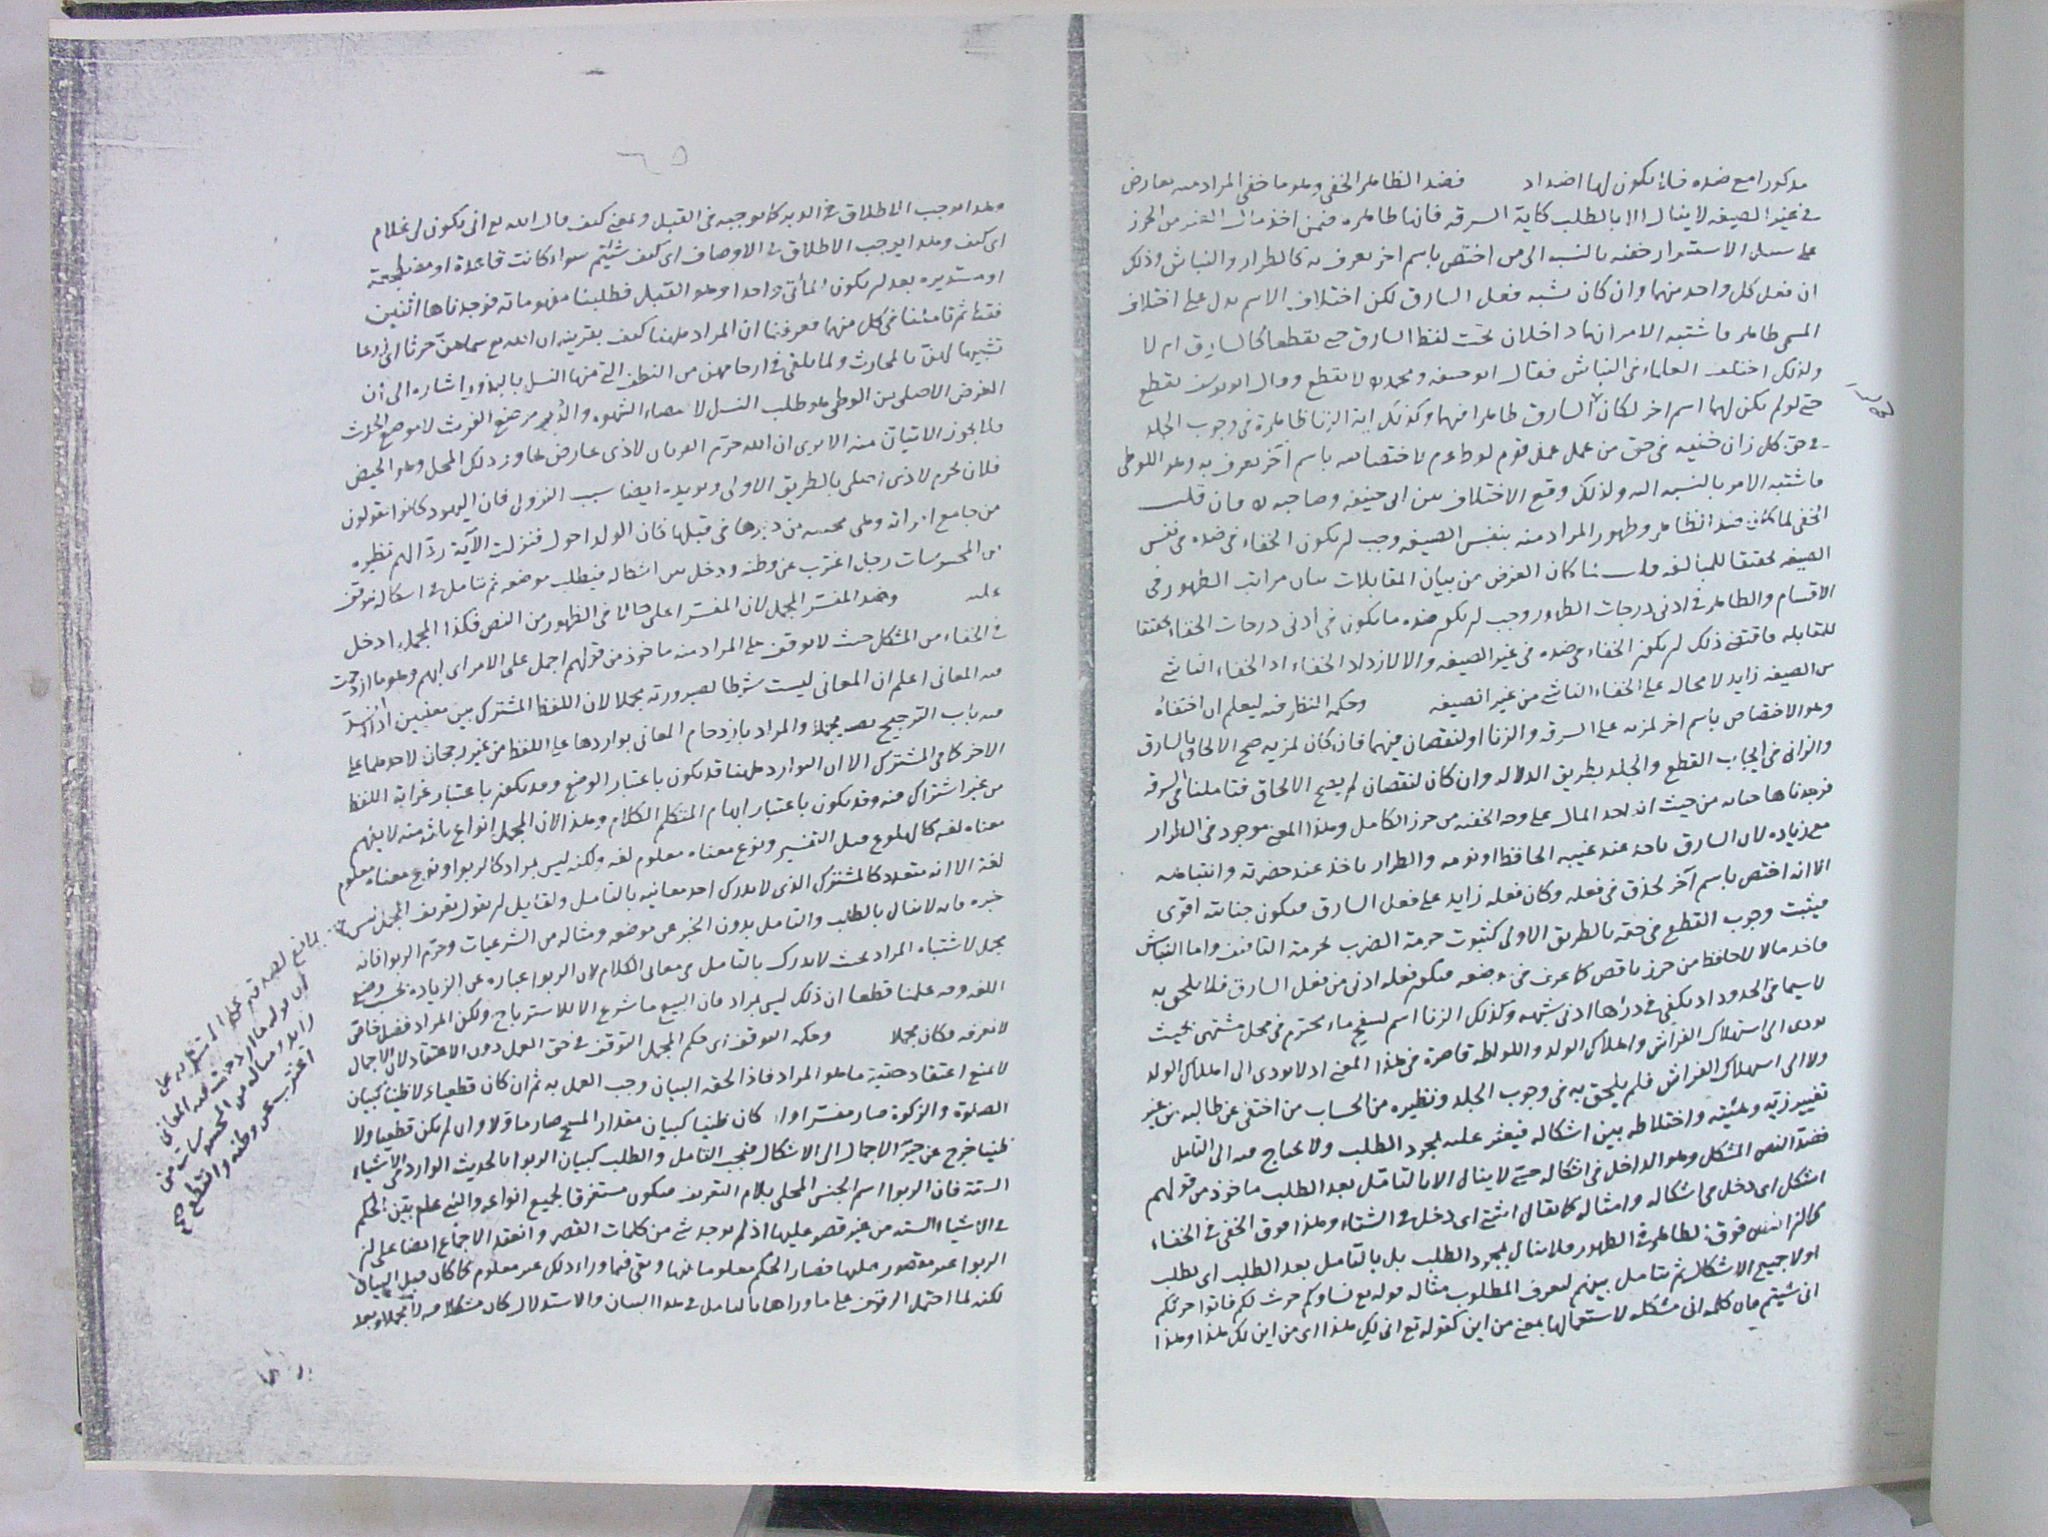 مذكورا مع ضده فلا يكون لها اضداد فضد الظاهر الخفي وهو ما خفي المراد منه بعارض
في غير الصيغة لا ينال الا بالطلب كاية السرقة فانها ظاهرة فيمن اخذ مال الغير من الحرز
على سبيل الاستسرار خفية بالنسبة الى من اختص باسم اخر يعرف به كالطرار والنباش وذلك
ان فعل كل واحد منهما وان كان يشبه فعل السارق لكن اختلاف الاسم يدل على اختلاف
المسمى ظاهرا فاشتبه الامر انهما داخلان تحت لفظ السارق حتى يقطعا كالسارق ام لا
ولذلك اختلف العلماء في النباش فقال ابو حنيفة ومحمد لا يقطع وقال ابو يوسف يقطع
حتى لو لم يكن لهما اسم اخر لكان السارق ظاهرا فيهما وكذلك اية الزنا ظاهرة في وجوب الجلد
في حق كل زان خفية في حق من عمل عمل قوم لوط لاختصاصه باسم آخر يعرف به وهو اللوطي
فاشتبه الامر بالنسبة اليه ولذلك وقع الاختلاف بين ابي حنيفة وصاحبيه فان قلت
الخفي لما كان ضد الظاهر وظهور المراد منه بنفس الصيغة وجب ان يكون الخفاء في ضده في نفس
الصيغة تحقيقا للمخالفة قلت لما كان الغرض من بيان المقابلات بيان مراتب الظهور في
الاقسام والظاهر في ادنى درجات الظهور وجب ان يكون ضده ما يكون في ادنى درجات الخفاء تحقيقا
للمقابلة فاقتضى ذلك ان يكون الخفاء في ضده في غير الصيغة والا لازداد الخفاء اذ الخفاء الناشئ
من الصيغة زايد لا محالة على الخفاء الناشئ من غير الصيغة وحكمه النظر فيه ليعلم ان اختفاءه
وهو الاختصاص باسم اخر لمزية على السرقة والزنا او لنقصان فيهما فان كان لمزية صح الالحاق بالسارق
والزاني في ايجاب القطع والجلد بطريق الدلالة وان كان لنقصان لم يصح الالحاق فتاملنا في السرقة
فوجدناها جناية من حيث انه اخذ المال على وجه الخفية من حرز الكامل وهذا المعنى موجود في الطرار
مع زيادة لان السارق ياخذ عند غيبة الحافظ او نومه والطرار ياخذ عند حضرته وانتباهه
الا انه اختص باسم آخر لحذق في فعله وكان فعله زايد على فعل السارق فيكون جنايته اقوى
فيثبت وجوب القطع في حقه بالطريق الاولى كثبوت حرمة الضرب بحرمة التافيف واما النباش
فاخذ مالا لا حافظ من حرز ناقص كما عرف في موضعه فيكون فعله ادنى من فعل السارق فلا يلحق به
لا سيما في الحدود اذ يكفي في درئها ادنى شبهة وكذلك الزنا اسم لسفح ماء محترم في محل مشتهى بحيث
يودى الى استهلاك الفراش واهلاك الولد واللواطة قاصرة في هذا المعنى اذ لا يودى الى اهلاك الولد
ولا الى استهلاك الفراش فلم يلحق به في وجوب الجلد ونظيره من الحساب من اختفى عن طالبه من غير
تغيير زيه وهيئته واختلاطه بين اشكاله فيعثر عليه بمجرد الطلب ولا يحتاج فيه الى التامل
فضد النص المشكل وهو الداخل في اشكاله حتى لا ينال الا بالتامل بعد الطلب ماخوذ من قولهم
اشكل اى دخل في اشكاله وامثاله كما يقال اشتى اى دخل في الشتاء وهذا فوق الخفي في الخفاء
كما ان النص فوق الظاهر في الظهور فلا ينال بمجرد الطلب بل بالتامل بعد الطلب اى يطلب
اولا جميع الاشكال ثم يتامل بينهم ليعرف المطلوب مثاله قوله تع نساؤكم حرث لكم فاتوا حرثكم
انى شئتم فان كلمة انى مشكلة لاستعمالها بمعنى من اين كقوله تع انى لك هذا اى من اين لك هذا وهذا
٦٥
وهذا يوجب الاطلاق في الدبر كما يوجبه في القبل وبمعنى كيف قال الله تع انى يكون لي غلام
اى كيف وهذا يوجب الاطلاق في الاوصاف اى كيف شئتم سواء كانت قاعدة او مضطجعة
او مستديرة بعد ان يكون المأتى واحدا وهو القبل فطلبنا مفهوماته فوجدناها اثنين
فقط ثم تاملنا في كل منهما فعرفنا ان المراد ههنا كيف بقرينة ان الله تع سماهن حرثا اى زرعا
تشبيها لهن بالمحارث ولما يلقى في ارحامهن من النطف التي منها النسل بالبذور اشارة الى ان
الغرض الاصلي من الوطي هو طلب النسل لا قضاء الشهوة والدبر موضع الفرث لا موضع الحرث
فلا يجوز الاتيان منه الا يرى ان الله حرم القربان لاذى عارض مجاور ذلك المحل وهو الحيض
فلان يحرم لاذى اصلي بالطريق الاولى ويويده ايضا سبب النزول فان اليهود كانوا يقولون
من جامع امراته وهى مجبية من دبرها في قبلها كان الولد احول فنزلت الآية ردا لهم نظيره
من المحسوسات رجل اغترب عن وطنه ودخل بين اشكاله فيطلب موضعه ثم يتامل في اشكاله فيوقف
عليه وضد المفسر المجمل لان المفسر اعلى حالا في الظهور من النص فكذا المجمل ادخل
في الخفاء من المشكل حيث لا يوقف على المراد منه ماخوذ من قولهم اجمل على الامر اى ابهم وهو ما ازدحمت
فيه المعاني اعلم ان المعاني ليست شرطا لصيرورته مجملا لان اللفظ المشترك بين معنيين اذا انسد
فيه باب الترجيح يصير مجملا والمراد بازدحام المعاني تواردها على اللفظ من غير رجحان لاحدهما على
الاخر كما في المشترك الا ان التوارد ههنا قد يكون باعتبار الوضع وقد يكون باعتبار غرابة اللفظ
من غير اشتراك فيه وقد يكون باعتبار ابهام المتكلم الكلام وهذا لان المجمل انواع ثلثة منه لا يفهم
معناه لغة كالهلوع قبل التفسير ونوع معناه معلوم لغة ولكنه ليس بمراد كالربوا ونوع معناه معلوم
لغة الا انه متعدد كالمشترك الذي لا يدرك احد معانيه بالتامل ولقايل ان يقول تعريف المجمل ليس
خبره فانه لا ينال بالطلب والتامل بدون الخبر عن موضعه ومثاله من الشرعيات وحرم الربوا فانه
مجمل لاشتباه المراد بحيث لا يدرك بالتامل في معاني الكلام لان الربوا عبارة عن الزيادة بحسب وضع
اللغة وقد علمنا قطعا ان ذلك ليس بمراد فان البيع ما شرع الا للاسترباح ولكن المراد فضل خاص
لا نعرفه فكان مجملا وحكمه التوقف اى حكم المجمل التوقف في حق العمل دون الاعتقاد لان الاجمال
لا يمنع اعتقاد حقية ما هو المراد فاذا لحقه البيان وجب العمل به ثم ان كان قطعيا لا ظنيا كبيان
الصلوة والزكوة صار مفسرا وان كان ظنيا كبيان مقدار المسح صار ماولا وان لم يكن قطعيا ولا
ظنيا خرج عن حيز الاجمال الى الاشكال فيجب التامل والطلب كبيان الربوا بالحديث الوارد في الاشياء
الستة فان الربوا اسم الجنس المحلى بلام التعريف فيكون مستغرقا لجميع انواعه والنبي علم بين الحكم
في الاشياء الستة من غير قصر عليها اذ لم يوجد شئ من كلمات القصر وانعقد الاجماع ايضا على ان
الربوا غير مقصور عليها فصار الحكم معلوما فيها وبقى فيما وراء ذلك غير معلوم كما كان قبل البيان
لكنه لما احتمل الوقوف على ما وراها بالتامل في هذا البيان والاستدلال كان مشكلا فيه لا مجملا وبعد